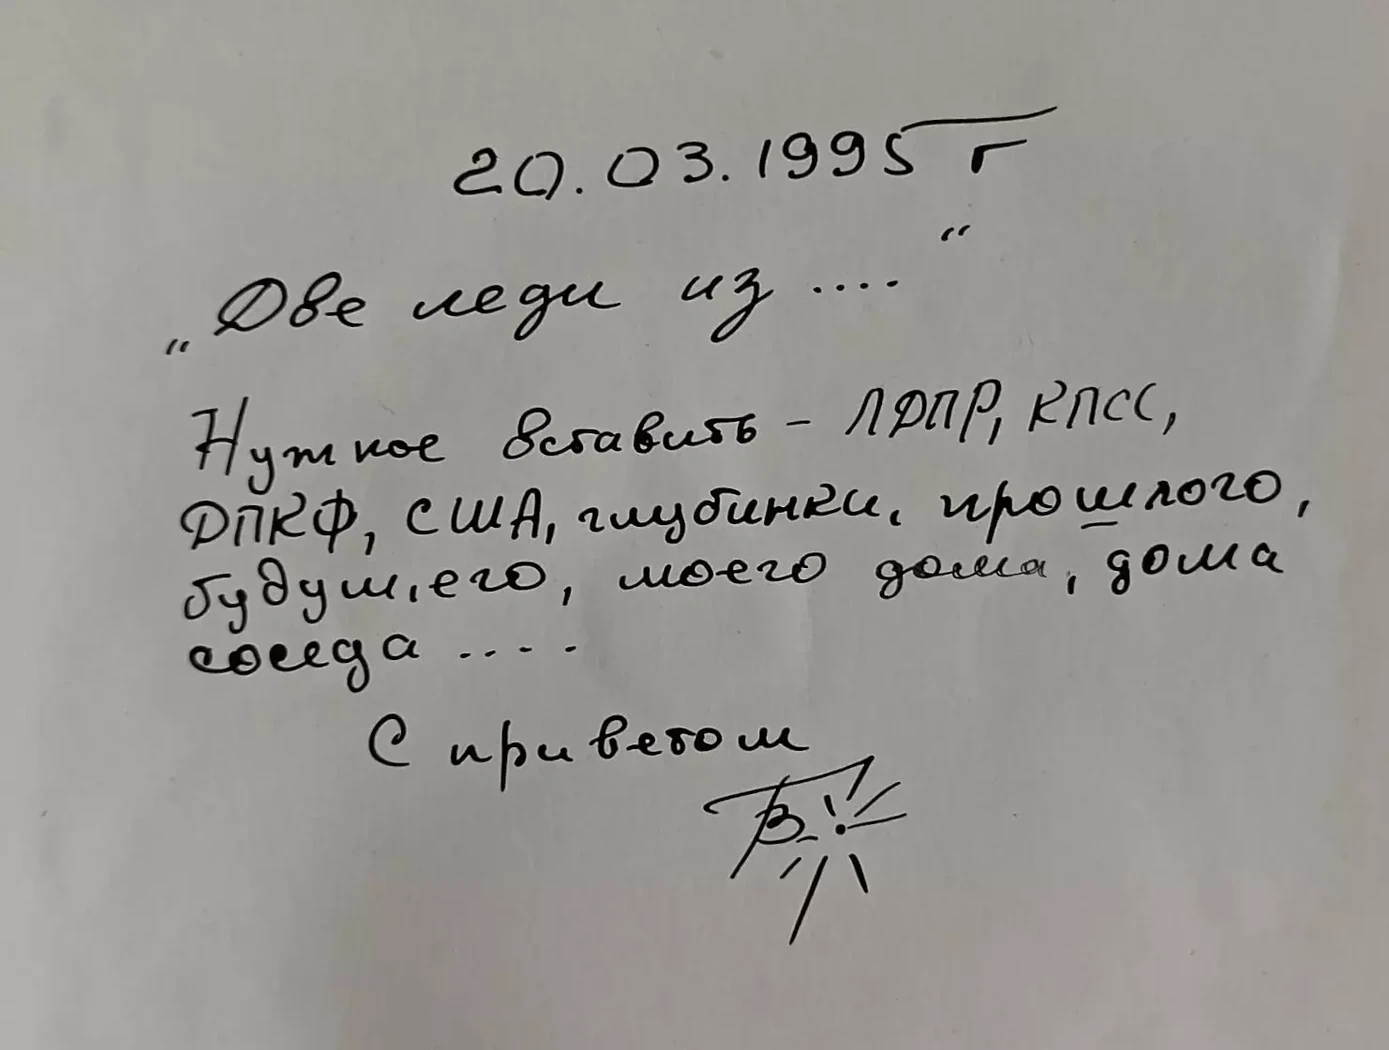 20.03.1995 г
„Две леди из ...."
Нужное вставить - ЛДПР, КПСС,
ДПКФ, США, глубинки, прошлого,
будущего, моего дома, дома
соседа ....
С приветом